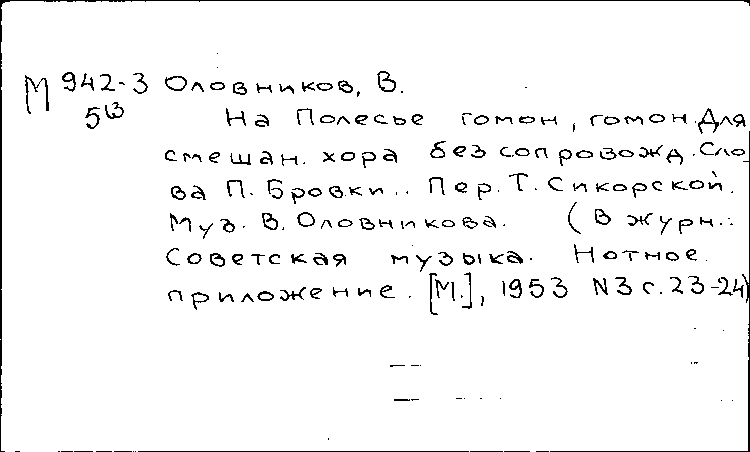 М 942-3 Оловников, В.
5 13 На Полесье гомон, гомон. Для
смешан. хора без сопровожд. Сло
ва П. Бровки.. Пер. Т. Сикорской.
Муз. В. Оловникова. (В журн.:
Советская музыка. Нотное
приложение. [М.], 1953 N3 с. 23-24)